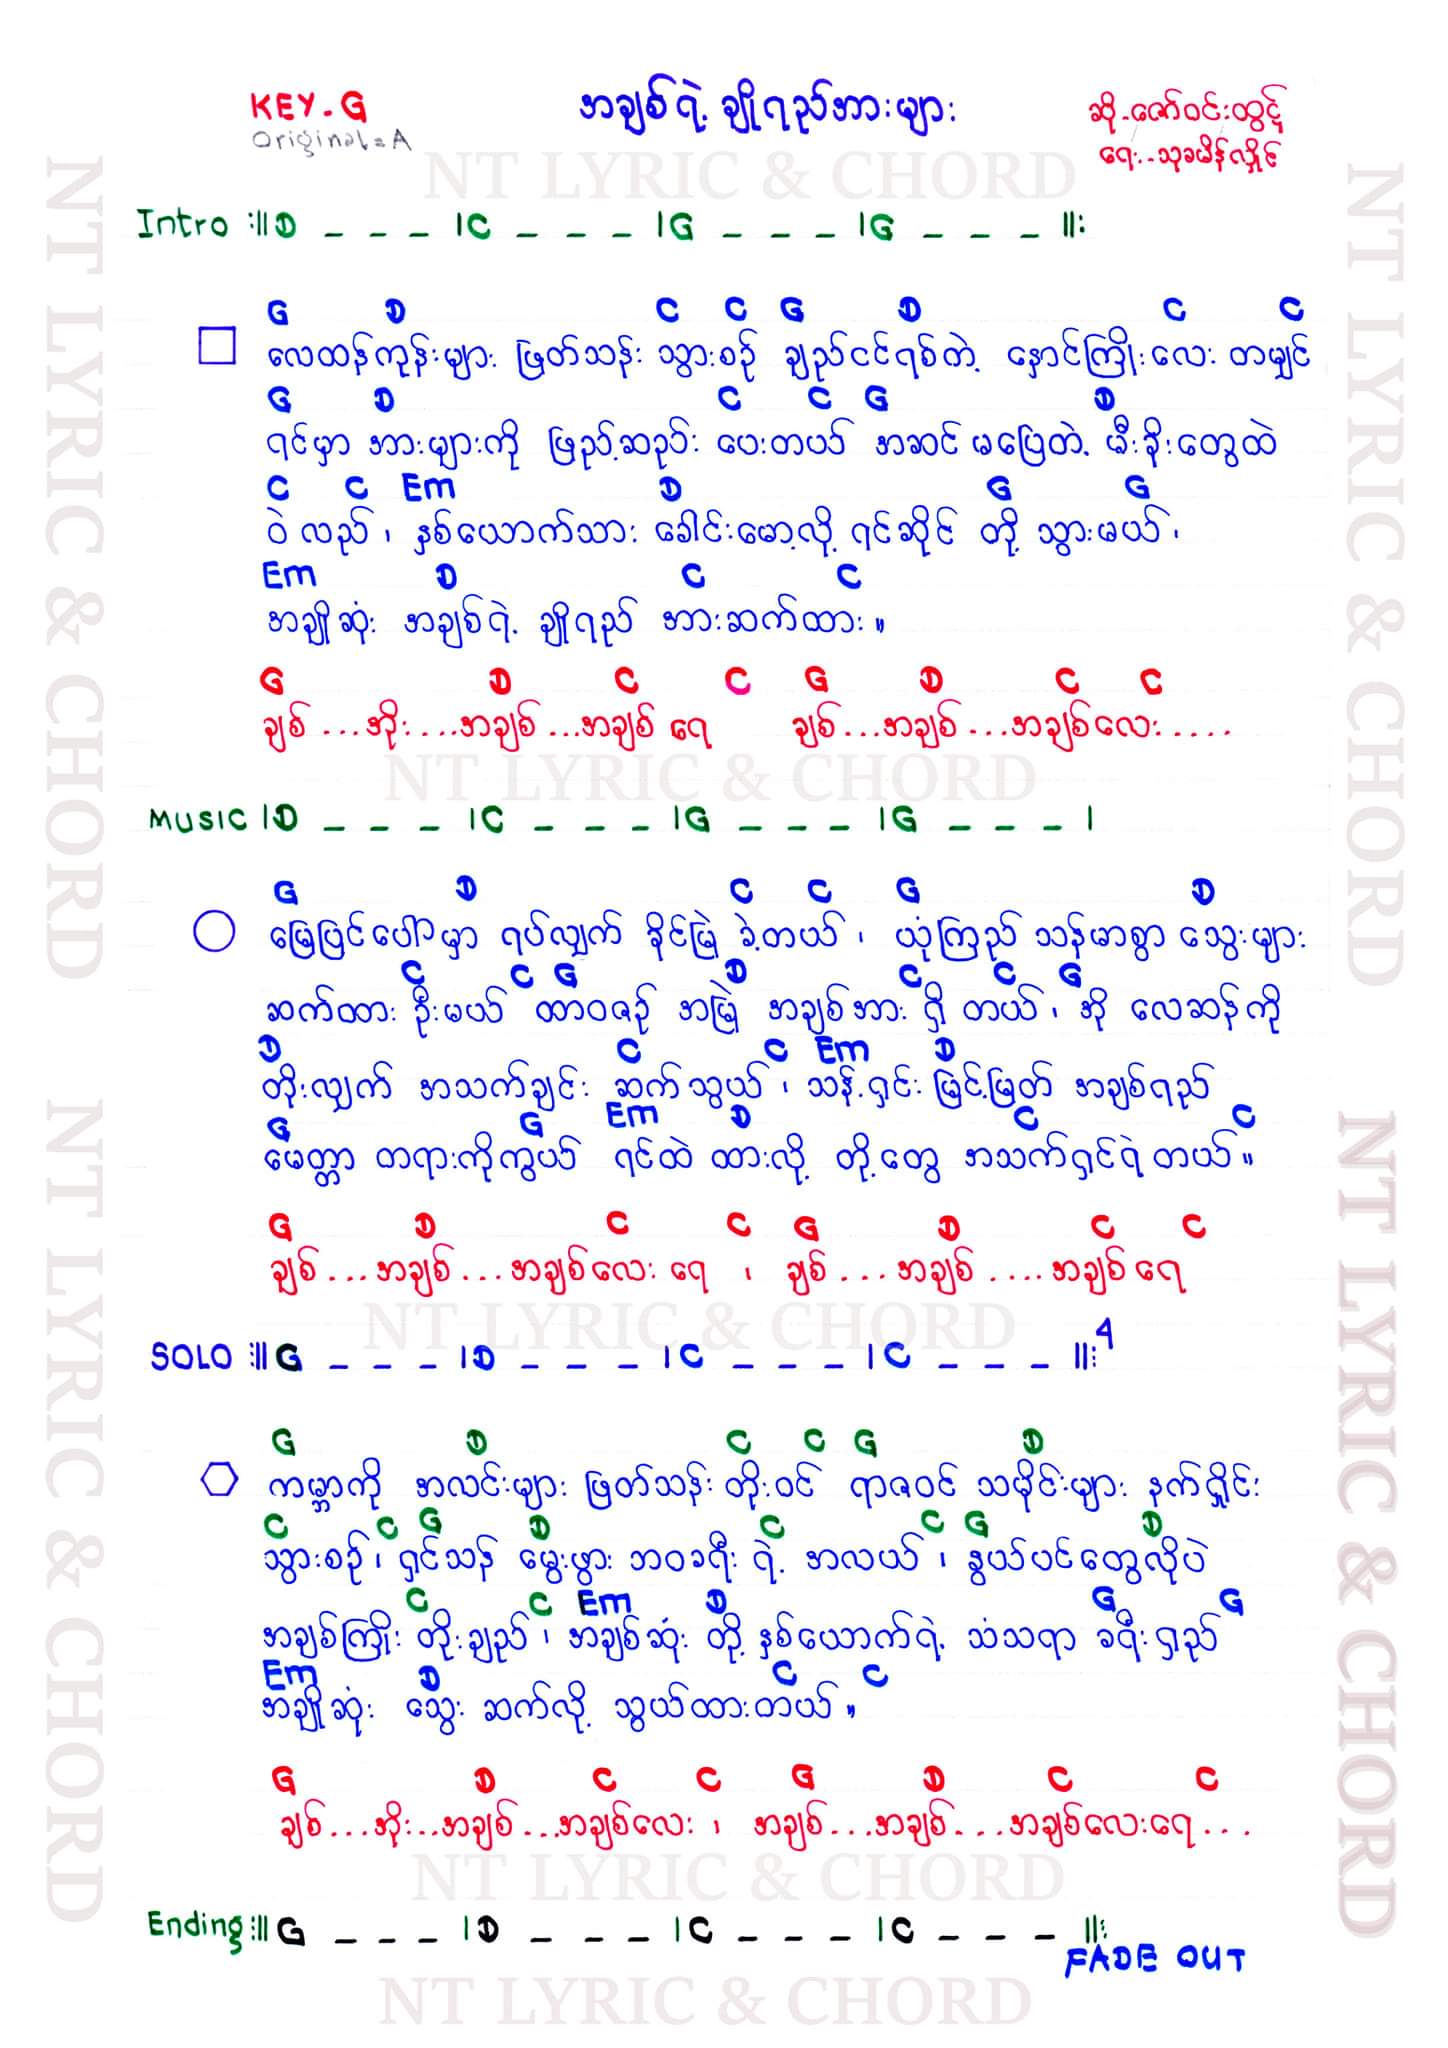 KEY-G
Original=A
အချစ်ရဲ့ ချိုရည်အားများ
ဆို-ဇော်ဝင်းထွဋ်
ရေး-သုခမိန်လှိုင်
NT LYRIC & CHORD
Intro :||D _ _ _ |C _ _ _ |G _ _ _ |G _ _ _ ||:
G D C C G D C C
လေထန်ကုန်းများ ဖြတ်သန်း သွားစဉ် ချည်ငင်ရစ်တဲ့ နှောင်ကြိုးလေး တမျှင်
G D C C G D
ရင်မှာ အားများကို ဖြည့်ဆည်း ပေးတယ် အဆင် မပြေတဲ့ မီးခိုးတွေထဲ
C C Em D G G
ဝဲ လည်၊ နှစ်ယောက်သား ခေါင်းမော့လို့ ရင်ဆိုင် တို့ သွားမယ်၊
Em D C C
အချိုဆုံး အချစ်ရဲ့ ချိုရည် အားဆက်ထား။
G D C C G D C C
ချစ်...အိုး....အချစ်...အချစ် ရေ ချစ်...အချစ်...အချစ်လေး....
NT LYRIC & CHORD
MUSIC |D _ _ _ |C _ _ _ |G _ _ _ |G _ _ _ |
G D C C G D
မြေပြင်ပေါ်မှာ ရပ်လျှက် ခိုင်မြဲ ခဲ့တယ်၊ ယုံကြည် သန်မာစွာ သွေးများ
C C G D C C G
ဆက်ထား ဦးမယ် ထာဝစဉ် အမြဲ အချစ်အား ရှိ တယ်၊ အို လေဆန်ကို
D C C Em D
တိုးလျှက် အသက်ချင်း ဆက်သွယ်၊ သန့်ရှင်း မြင့်မြတ် အချစ်ရည်
G G Em D C C
မေတ္တာ တရားကိုကွယ် ရင်ထဲ ထားလို့ တို့တွေ အသက်ရှင်ရဲတယ်။
G D C C G D C C
ချစ်...အချစ်...အချစ်လေး ရေ ၊ ချစ်...အချစ်....အချစ်ရေ
NT LYRIC & CHORD
SOLO :||G _ _ _ |D _ _ _ |C _ _ _ |C _ _ _ ||: 4
G D C C G D
ကမ္ဘာကို အလင်းများ ဖြတ်သန်း တိုးဝင် ရာဇဝင် သမိုင်းများ နက်ရှိုင်း
C C G D C C G D
သွားစဉ်၊ ရှင်သန် မွေးဖွား ဘဝခရီး ရဲ့ အလယ်၊ နွယ်ပင်တွေလိုပဲ
C C Em D G G
အချစ်ကြိုး တိုးချည်၊ အချစ်ဆုံး တို့ နှစ်ယောက်ရဲ့ သံသရာ ခရီးရှည်
Em D C C
အချိုဆုံး သွေး ဆက်လို့ သွယ်ထားတယ်။
G D C C G D C C
ချစ်...အိုး...အချစ်...အချစ်လေး ၊ အချစ်...အချစ်...အချစ်လေးရေ...
NT LYRIC & CHORD
Ending :||G _ _ _ |D _ _ _ |C _ _ _ |C _ _ _ ||:
FADE OUT
NT LYRIC & CHORD
NT LYRIC & CHORD
NT LYRIC & CHORD
NT LYRIC & CHORD
NT LYRIC & CHORD